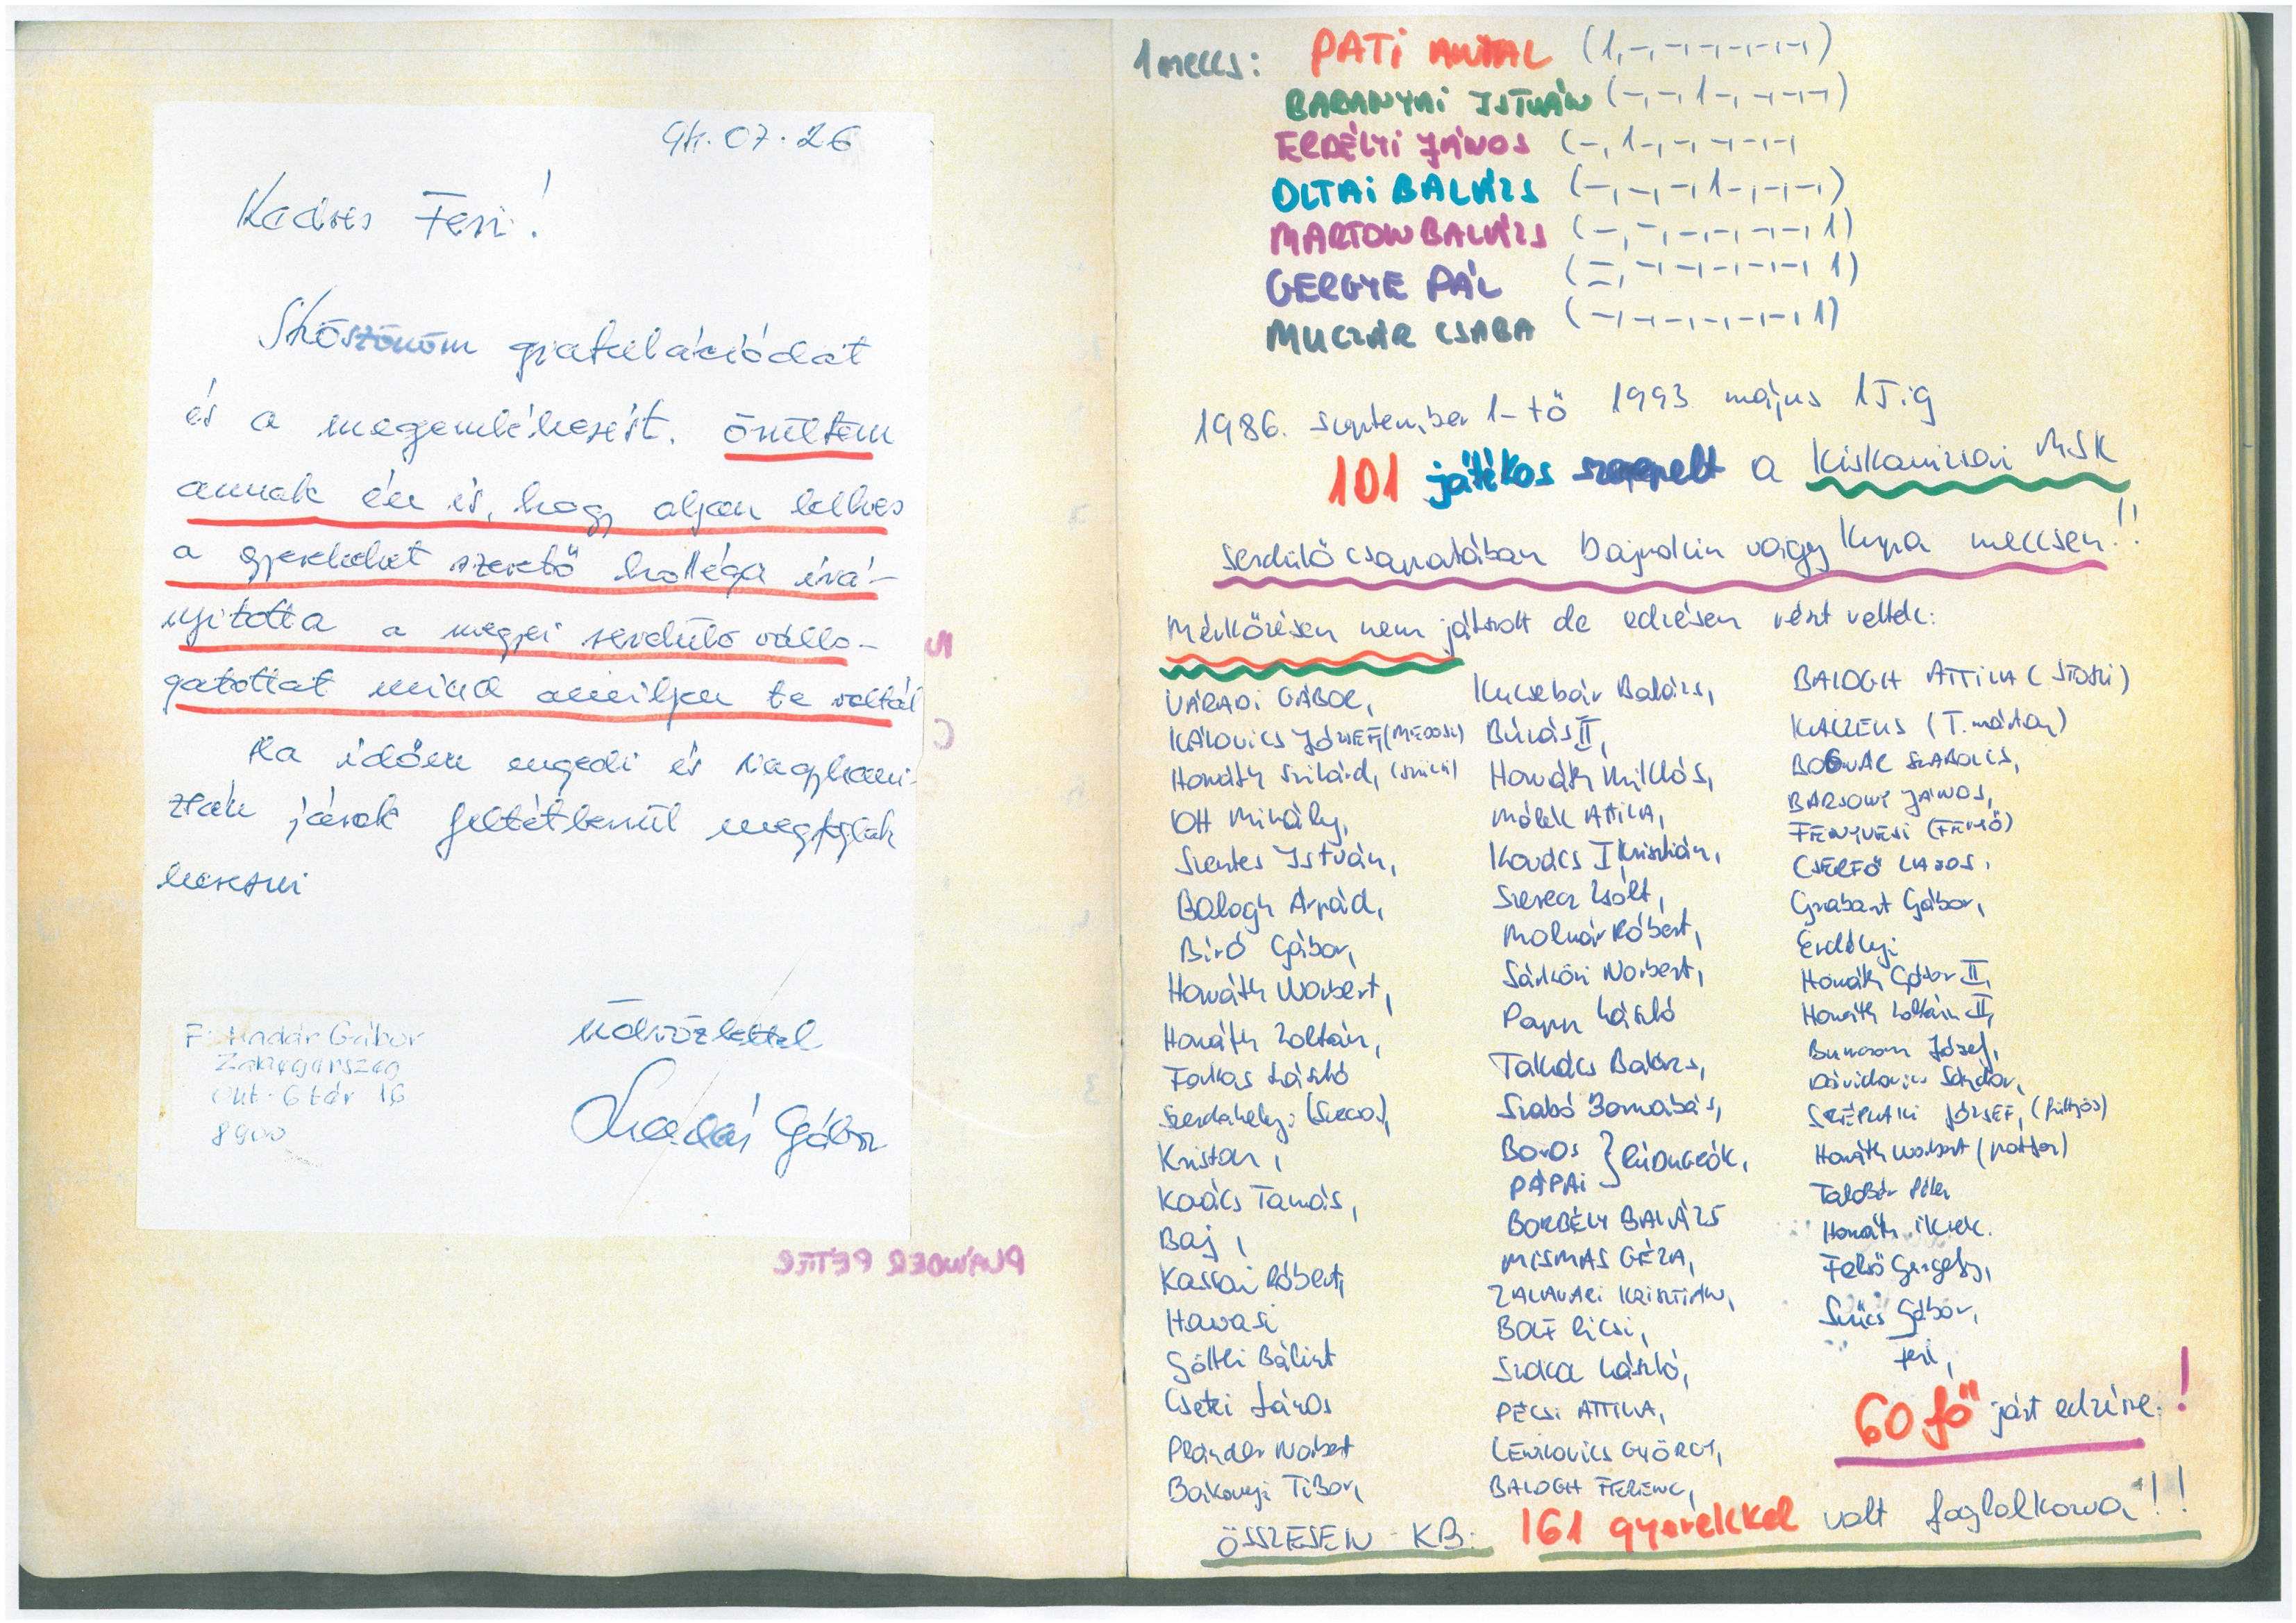 94.07.26
Kedves Feri!
Köszönöm gratulációdat
és a megemlékezést. Örültem
annak én is, hogy olyan lelkes
a gyerekeket szerető kolléga irá-
nyitotta a megyei serdülő válo-
gatottat mind amilyen te voltál
Ha időm engedi és Nagykani-
zsán járok feltétlenül megfoglak
keresni
Üdvözlettel
Madár Gábor
F: Madár Gábor
Zalaegerszeg
Okt. 6 tér 16
8900
PLANDER PÉTER
1 meccs: PATI ANTAL (1,-,-,-,-,-,-,-)
BARANYAI ISTVÁN (-,-,1-,-,-,-,-)
ERDÉLYI JÁNOS (-,1-,-,-,-,-,-
OLTAI BALÁZS (-,-,-,1-,-,-,-)
MARTON BALÁZS (-,-,-,-,-,-,-,1)
GERGYE PÁL (-,-,-,-,-,-,-,1)
MUCZÁR CSABA (-,-,-,-,-,-,1)
1986. szeptember 1-től 1993 május 15.ig
101 játékos szerepelt a Kiskanizsai MSK
serdülő csapatában bajnokin vagy kupa meccsen!!
Mérkőzésen nem játszott de edzésen részt vettek:
VÁRADI GÁBOR,
KÁLOVICS JÓZSEF,
Horváth Szilárd,
OH Mihály,
Szentes István,
Balogh Árpád,
Bíró Gábor,
Horváth Norbert,
Horváth Zoltán,
Farkas László
Szerdahelyi (Szeca),
Kriston,
Kovács Tamás,
Baj,
Kassai Róbert,
Havasi
Göltli Bálint
Csetei János
Plánder Norbert
Bakonyi Tibor,
Kucsebár Balázs,
Búzás II,
Horváth Miklós,
Málek Attila,
Kovács I Krisztián,
Szerecz Zsolt,
Molnár Róbert,
Sárközi Norbert,
Papp László
Takács Balázs,
Szabó Barnabás,
Boros
PÁPAI
BORBÉLY BALÁZS
MISMÁS GÉZA,
ZALAVÁRI KRISZTIÁN,
BOLF Ricsi,
Szaka László,
PÉCSI ATTILA,
LENKOVICS GYÖRGY,
BALOGH FERENC,
BALOGH ATTILA
KAIZENS (T. márton)
BOGNÁR SZABOLCS,
BARSONY JÁNOS,
FENYVESI
CSERFŐ LAJOS,
Grabant Gábor,
Erdélyi
Horváth Gábor II,
Horváth Zoltán II,
József,
Dávidovics Sándor,
SZÉPLAKI JÓZSEF,
Horváth Norbert
Horváth ikrek.
Felső Gergely,
Szűcs Gábor,
Feri,
60 fő járt edzésre.!
ÖSSZESEN KB: 161 gyerekkel volt foglalkozva!!